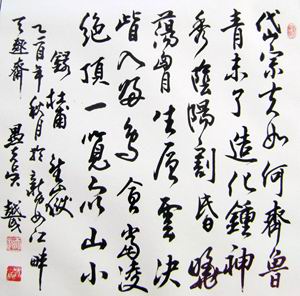 岱宗夫如何齊魯
青未了造化鍾神
秀陰陽割昏曉
蕩胸生層雲決
眥入歸鳥會當凌
絕頂一覽眾山小
錄杜甫望嶽
乙酉年秋月於
齋